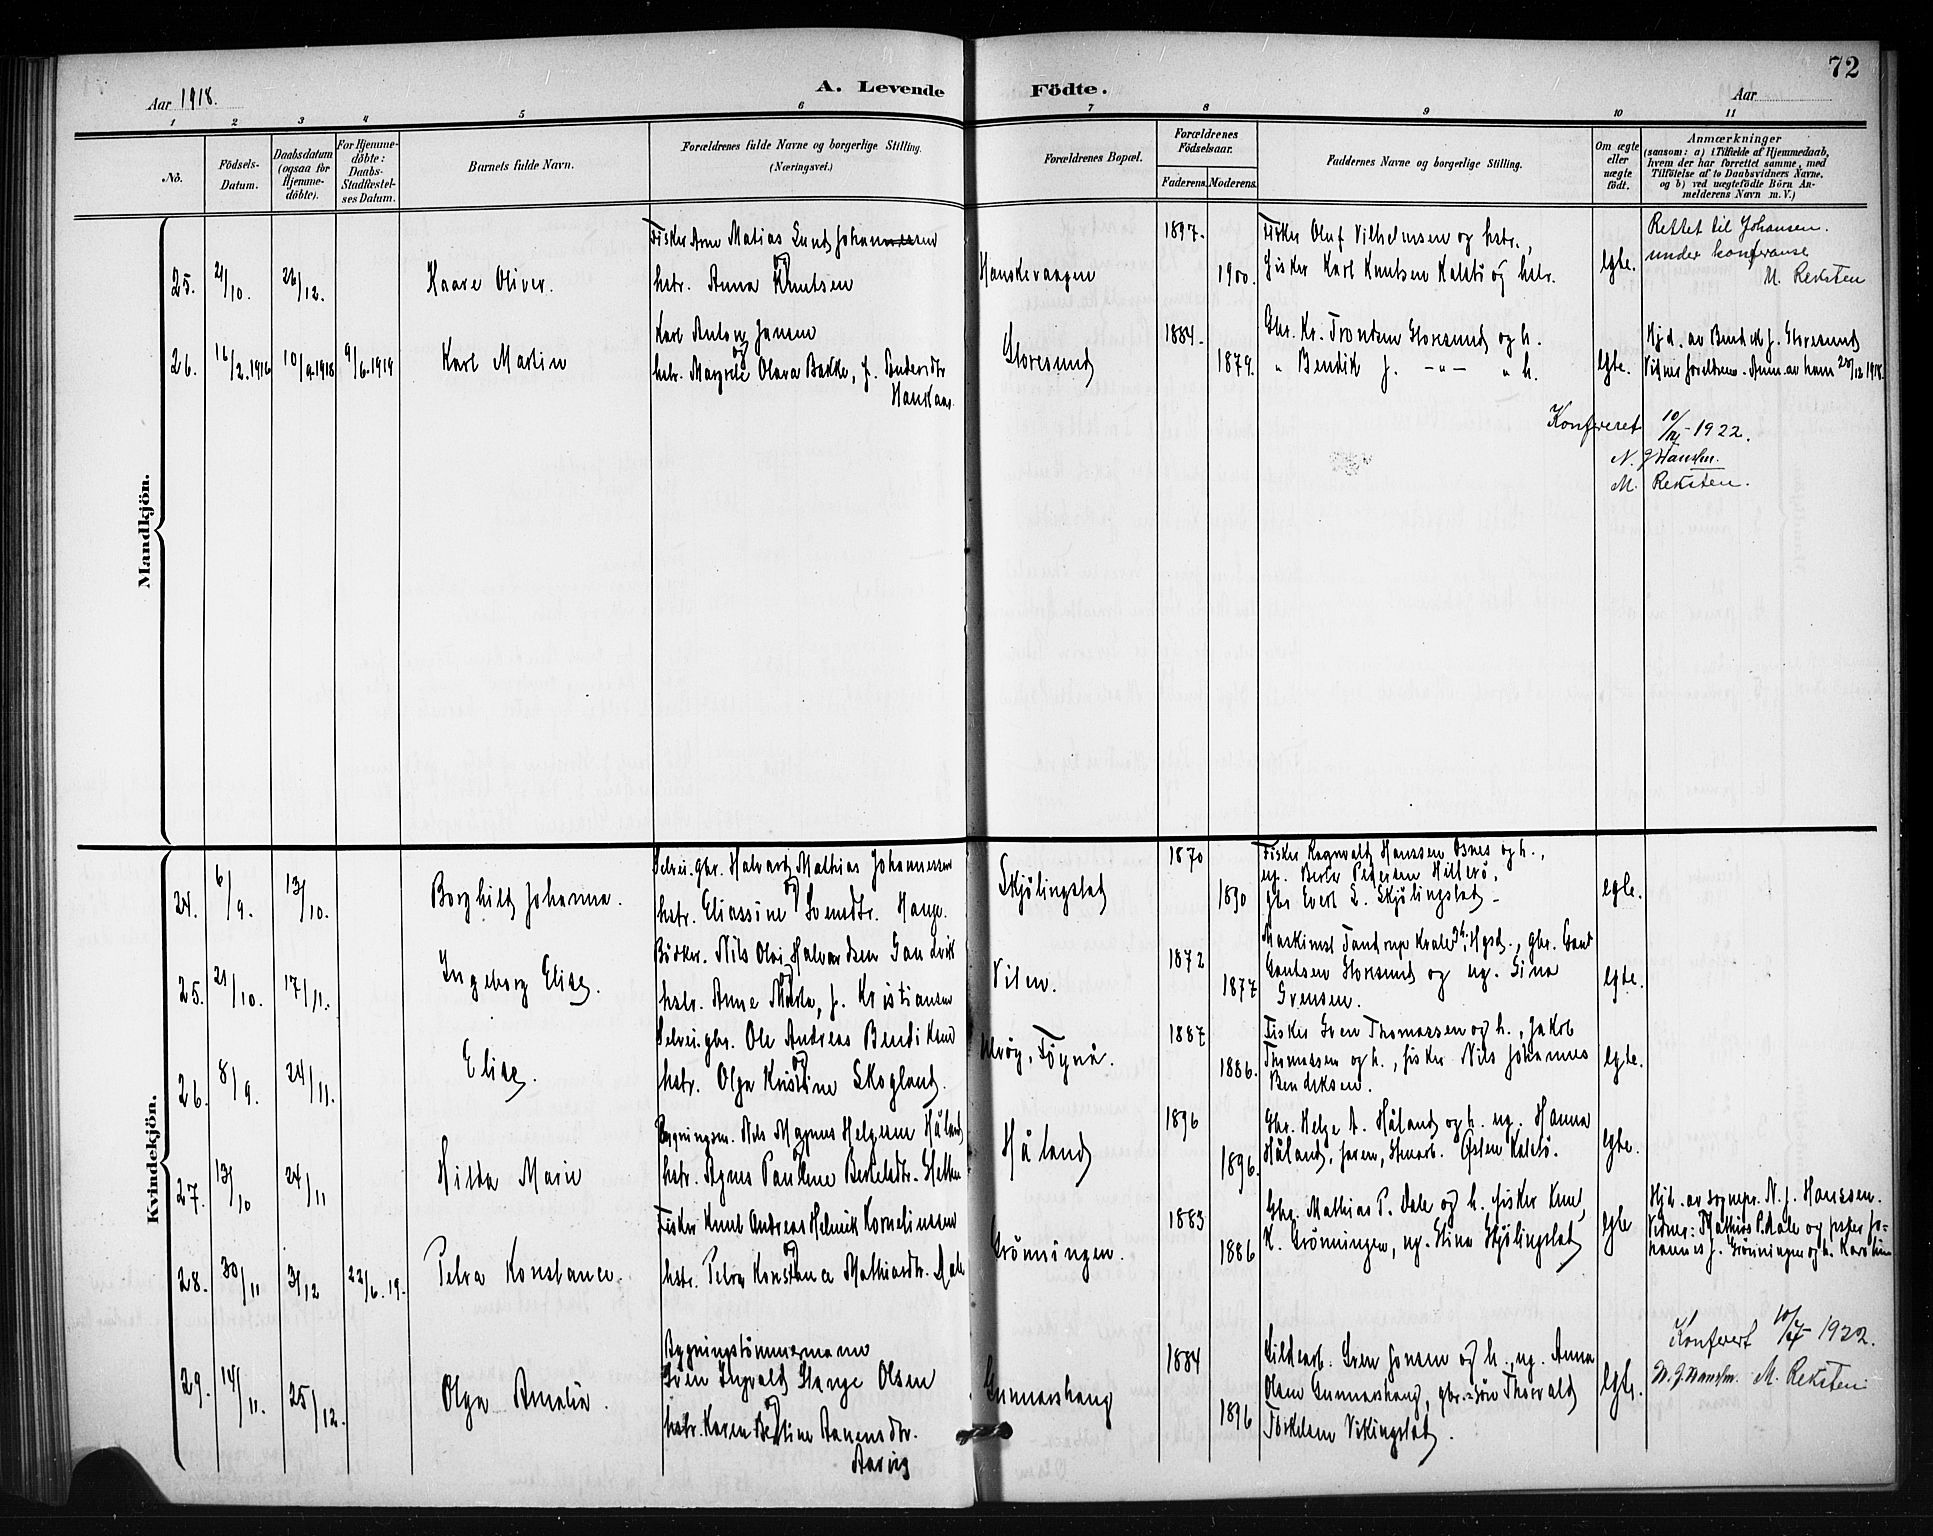 72
Aar 1918.
A. Levende Födte.
Aar
1 2 3 4 5 6 7 8 9 10 11
No.
Födsels-Datum.
Daabsdatum (ogsaa for Hjemme-döbte).
For Hjemme-döbte: Daabs-Stadfæstel-ses Datum.
Barnets fulde Navn.
Forældrenes fulde Navne og borgerlige Stilling.
(Næringsvei.)
Forældrenes Bopæl.
Forældrenes Födselsaar.
Faderens. Moderens.
Faddernes Navne og borgerlige Stilling.
Om ægte eller uægte födt.
Anmærkninger
(saasom: a) i Tilfælde af Hjemmedaab,
hvem der har forrettet samme, med
Tilföielse af to Daabsvidners Navne,
og b) ved uægtefödte Börn An-
melderens Navn m. V.)
Mandkjön.
25. 21/10. 26/12. Kaare Oliver.
Fisker Arne Matias Lund Johannessen
og
hstr. Anna Knutsen
Hanskevaagen
1897.
1900.
Fisker Oluf Vilhelmsen og hstr.,
Fisker Karl Knutsen Kalstö og hstr.
Egte.
Rettet til Johansen.
under konferanse
M. Reksten
26. 16/2.1916 10/9.1918 9/6.1919 Karl Martin
Karl Anton Jansen
og
hstr. Margrete Olava Bakke, f. Sandersdtr
Hanskaas
Storesund
1884.
1879.
Gbr. Kr. Trondsen Storesund og h.
" Bendik J. -"- " h.
Egte.
Hjd. av Bendik J. Storesund
Vidner foreldrene. Anm. av ham 20/12 1918.
Konfereret 10/4-1922.
N. J. Hanssen.
M. Reksten.
Kvindekjön.
24. 6/9. 13/10. Borghild Johanna.
Selvei. gbr. Halvard Mathias Johannessen
og
hstr. Eliassine Svensdtr. Hauge.
Skjölingstad
1870
1890
Fisker Ragnvald Hanssen Osnes og h.,
ug. Berta Pedersen Hillerö,
gbr Evert L. Skjölingstad -
Egte.
25. 21/10. 17/11. Ingeborg Elise.
Bödker. Nils Olai Halvardsen Sandvik
og
hstr. Anne Marta, f. Kristiansen
Visen.
1872
1877
Maskinist Tandrup Hgsd., gbr. Gaut
Gautsen Storesund og ug. Gina
Svensen.
Egte.
26. 8/9. 24/11. Elise.
Selvei. gbr. Ole Andreas Bendiksen
og
hstr. Olga Kristine Skogland.
Föynå.
1887
1886.
Fisker Sven Thomassen og h., Jakob
Thomassen og h., fisker Nils Johannes
Bendiksen.
Egte.
27. 13/10 24/11 Hilda Marie
Bygningsm. Nils Magnus Helgesen Håland
og
hstr. Agnes Pauline Berteldtr.
Håland
1896
1896.
Gbr. Helge A. Håland og h. ug. Hanna
Håland, Östen Kalstö.
Egte.
28. 30/11 31/12 22/6.19. Petra Konstance.
Fisker Knut Andreas Helmik Kornelinssen
og
hstr. Petra Konstance Mathiasdtr. Dale
Grönningen
1883
1886
Gbr. Mathias P. Dale og h. fisker Knut
K. Grönningen, ug. Stina Skjölingstad
Egte
Hjd. av sognepr. N. J. Hanssen.
Vidner: Mathias P. Dale og fisker Jo-
hannes J. Grönningen og h. Karoline
Konferert 10/4-1922.
N. J. Hanssen. M. Reksten
29. 14/11. 25/12. Olga Amalia.
Bygningstömmermann
Sven Ingvald Stange Olsen
og
hstr. Karen Bertine Aanensdtr.
Aarvig
Gunnarshaug
1884
1896
Sildearb. Sven Jonsen og h., ug. Anna
Olsen Gunnarshaug, gbr.sön Thorvald
Torkelsen Vikingstad.
Egte.